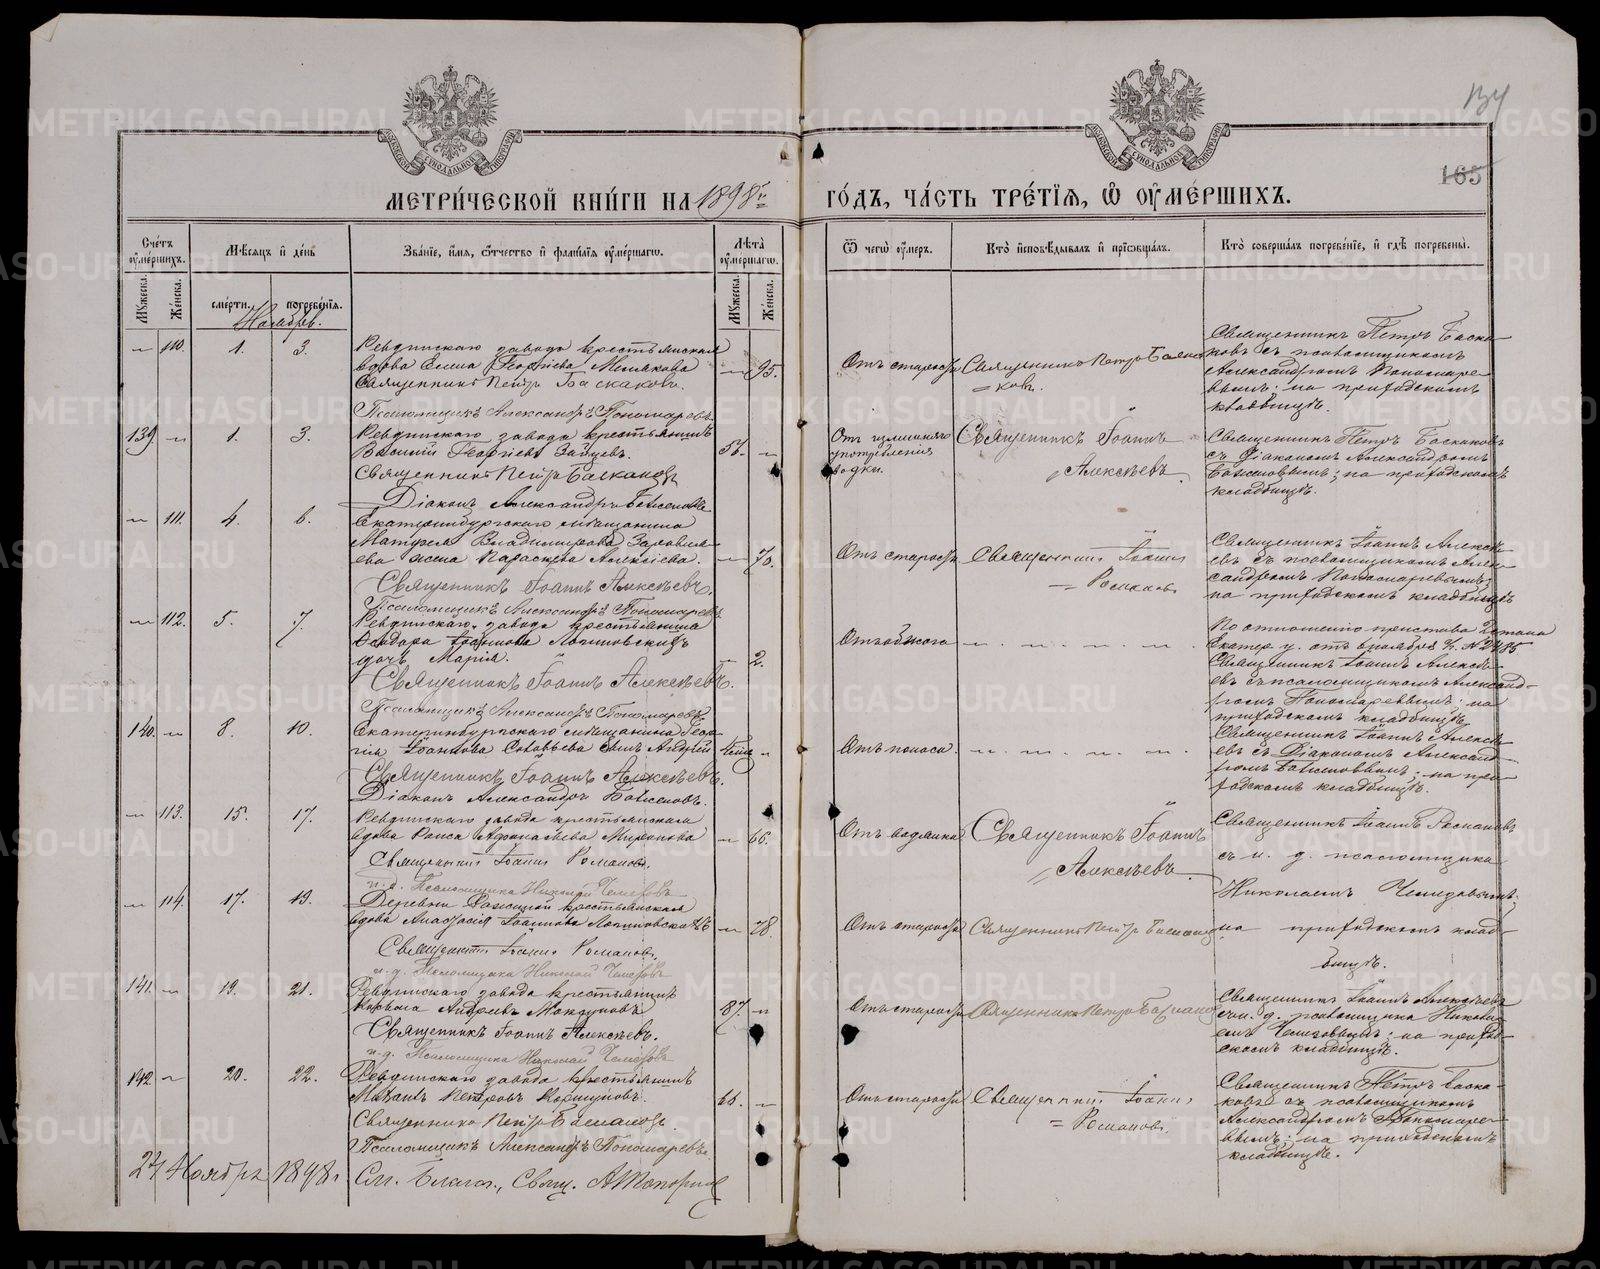 134
165
МЕТРИ́ЧЕСКОЙ КНИ́ГИ НА 1898 й
ГО́ДЪ, ЧА́СТЬ ТРЕ́ТІѦ, Ѡ҆ ОУ҆МЕ́РШИХЪ.
Сче́тъ оу҆ме́ршихъ.
Мꙋ́жеска.
Же́нска.
Мѣ́сяцъ и҆ де́нь
сме́рти.
погребе́нія.
Зва́ніе, и҆́мя, ѻ҆́тчество и҆ фами́лія оу҆ме́ршагѡ.
Лѣ́та оу҆ме́ршагѡ.
Мꙋ́жеска.
Же́нска.
Ѿ чегѡ̀ оу҆́меръ.
Кто̀ и҆сповѣ́дывалъ и҆ прїѡбща́лъ.
Кто̀ соверша́лъ погребе́ніе, и҆ гдѣ̀ погребены̀.
Ноябрь.
110. 1. 3.
Ревдинскаго завода крестьянская
вдова Елена Георгіева
95.
Священникъ Петръ Баскаковъ.
Псаломщикъ Александръ Пономаревъ
Отъ старости
Священникъ Петръ Баска-
ковъ.
Священникъ Петръ Баска-
ковъ съ псаломщикомъ
Александромъ Пономаре-
вымъ; на приходскомъ
кладбищѣ.
139 1. 3.
Ревдинскаго завода крестьянинъ
Василій Георгіевъ Зайцевъ.
57.
Священникъ Петръ Баскаковъ
Діаконъ Александръ
Отъ излишняго
употребленія
водки.
Священникъ Іоаннъ
Алексѣевъ.
Священникъ Петръ Баскаковъ
съ Діакономъ Александромъ
на приходскомъ
кладбищѣ.
111. 4. 6.
Екатеринбургскаго мѣщанина
Матвея Владимірова
жена Параскева Алексіева.
70.
Священникъ Іоаннъ Алексѣевъ.
Псаломщикъ Александръ Пономаревъ
Отъ старости
Священникъ Іоаннъ
Романовъ
Священникъ Іоаннъ Алексѣ-
евъ съ псаломщикомъ Алек-
сандромъ Пономаревымъ;
на приходскомъ кладбищѣ
112. 5. 7.
Ревдинскаго завода крестьянина
Логиновскихъ
дочь Марія.
2.
Священникъ Іоаннъ Алексѣевъ.
Псаломщикъ Александръ Пономаревъ
Отъ обжога
По отношенію пристава 2 стана
Екатер. у. отъ 6 ноября № 2485
Священникъ Іоаннъ Алексѣ-
евъ съ псаломщикомъ Александ-
ромъ Пономаревымъ; на
приходскомъ кладбищѣ
140. 8. 10.
Екатеринбургскаго мѣщанина Геор-
гія Іоаннова Соловьева сынъ Андрей
Священникъ Іоаннъ Алексѣевъ.
Діаконъ Александръ
Отъ поноса.
Священникъ Іоаннъ Алексѣ-
евъ съ Діакономъ Александ-
ромъ на при-
ходскомъ кладбищѣ.
113. 15. 17.
Ревдинскаго завода крестьянская
вдова Раиса Афанасьева Миронова
66.
Священникъ Іоаннъ Романовъ.
и. д. Псаломщика Николай
Отъ водянки
Священникъ Іоаннъ
Алексѣевъ.
Священникъ Іоаннъ Романовъ
съ и. д. псаломщика
Николаемъ
114. 17. 19.
крестьянская
вдова Анастасія Іоаннова
78.
Священникъ Іоаннъ Романовъ.
и. д. Псаломщика Николай
Отъ старости
Священникъ Петръ Баскаковъ
на приходскомъ клад-
бищѣ.
141. 19. 21.
Ревдинскаго завода крестьянинъ
Андреевъ
87.
Священникъ Іоаннъ Алексѣевъ.
и. д. Псаломщика Николай
Отъ старости
Священникъ Петръ Баскаковъ
Священникъ Іоаннъ Алексѣевъ
съ и. д. псаломщика Никола-
емъ на приход-
скомъ кладбищѣ.
142. 20. 22.
Ревдинскаго завода крестьянинъ
Петровъ Коршуновъ.
Священникъ Петръ Баскаковъ.
Псаломщикъ Александръ Пономаревъ.
Отъ старости
Священникъ Іоаннъ
Романовъ.
Священникъ Петръ Баска-
ковъ съ псаломщикомъ
Александромъ Пономаре-
вымъ; на приходскомъ
кладбищѣ.
24 Ноября 1898 г.
METRIKI.GASO-URAL.RU